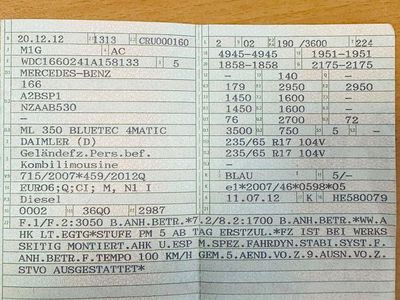 20.12.12 1313 CRU000160
M1G AC
WDC1660241A158133 5
MERCEDES-BENZ
166
A2BSP1
NZAAB530
-
ML 350 BLUETEC 4MATIC
DAIMLER (D)
Geländefz.Pers.bef.
Kombilimousine
715/2007*459/2012Q
EURO6;Q;CI; M, N1 I
Diesel
0002 36Q0 2987
2 02 190 /3600 224
4945-4945 1951-1951
1858-1858 2175-2175
- 140 -
- 2950 2950
1450 1600 -
1450 1600 -
76 2700 72
3500 750 5 -
235/65 R17 104V
235/65 R17 104V
-
BLAU 5/-
e1*2007/46*0598*05
11.07.12 K HE580079
F.1/F.2:3050 B.ANH.BETR.*7.2/8.2:1700 B.ANH.BETR.*WW.A
HK LT.EGTG*STUFE PM 5 AB TAG ERSTZUL.*FZ IST BEI WERKS
SEITIG MONTIERT.AHK U.ESP M.SPEZ.FAHRDYN.STABI.SYST.F.
ANH.BETR.F.TEMPO 100 KM/H GEM.5.AEND.VO.Z.9.AUSN.VO.Z.
STVO AUSGESTATTET*